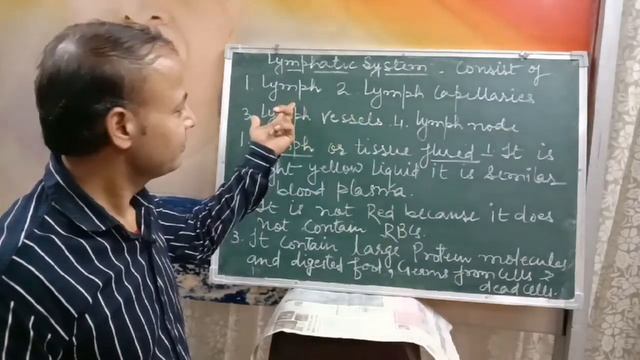 Lymphatic System. Consist of
1. Lymph 2. Lymph Capillaries
3. Lymph vessels 4. lymph node
1. Lymph or tissue flused ⊥ It is
light yellow liquid it is similar
blood plasma.
It is not Red because it does
not contain RBCs.
3. It contain large Protein molecules
and digested food, Germs from cells &
dead cells.